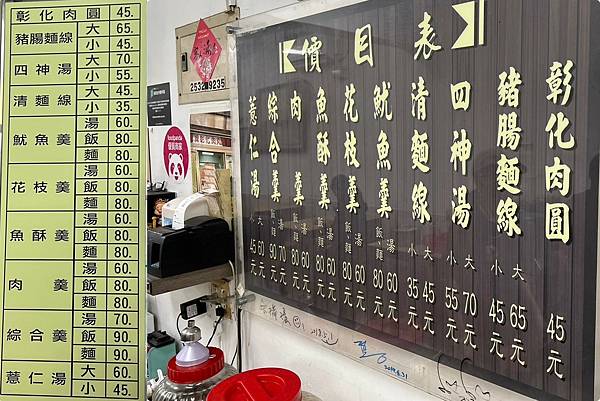 彰化肉圓 45.
豬腸麵線 大 65.
小 45.
四神湯 大 70.
小 55.
清麵線 大 45.
小 35.
魷魚羹 湯 60.
飯 80.
麵 80.
花枝羹 湯 60.
飯 80.
麵 80.
魚酥羹 湯 60.
飯 80.
麵 80.
肉羹 湯 60.
飯 80.
麵 80.
綜合羹 湯 70.
飯 90.
麵 90.
薏仁湯 大 60.
小 45.
2532-9235
foodpanda
價目表
彰化肉圓 45元
豬腸麵線 大 65元
小 45元
四神湯 大 70元
小 55元
清麵線 大 45元
小 35元
魷魚羹 湯 60元
飯、麵 80元
花枝羹 湯 60元
飯、麵 80元
魚酥羹 湯 60元
飯、麵 80元
肉羹 湯 60元
飯、麵 80元
綜合羹 湯 70元
飯、麵 90元
薏仁湯 大 60元
小 45元